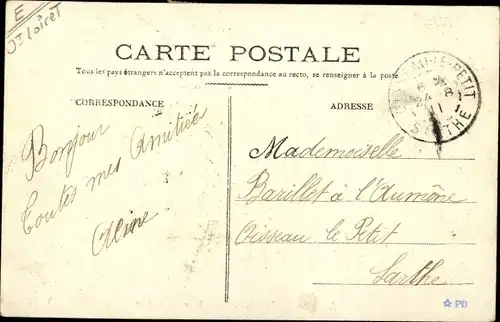 E
Dt Loiret
CARTE POSTALE
Tous les pays étrangers n'acceptent pas la correspondance au recto, se renseigner à la poste
CORRESPONDANCE
ADRESSE
Bonjour
Toutes mes Amitiés
Aline
Mademoiselle
Barillet à l'Aumône
Oisseau le Petit
Sarthe
AU-LE-PETIT
SARTHE
PB